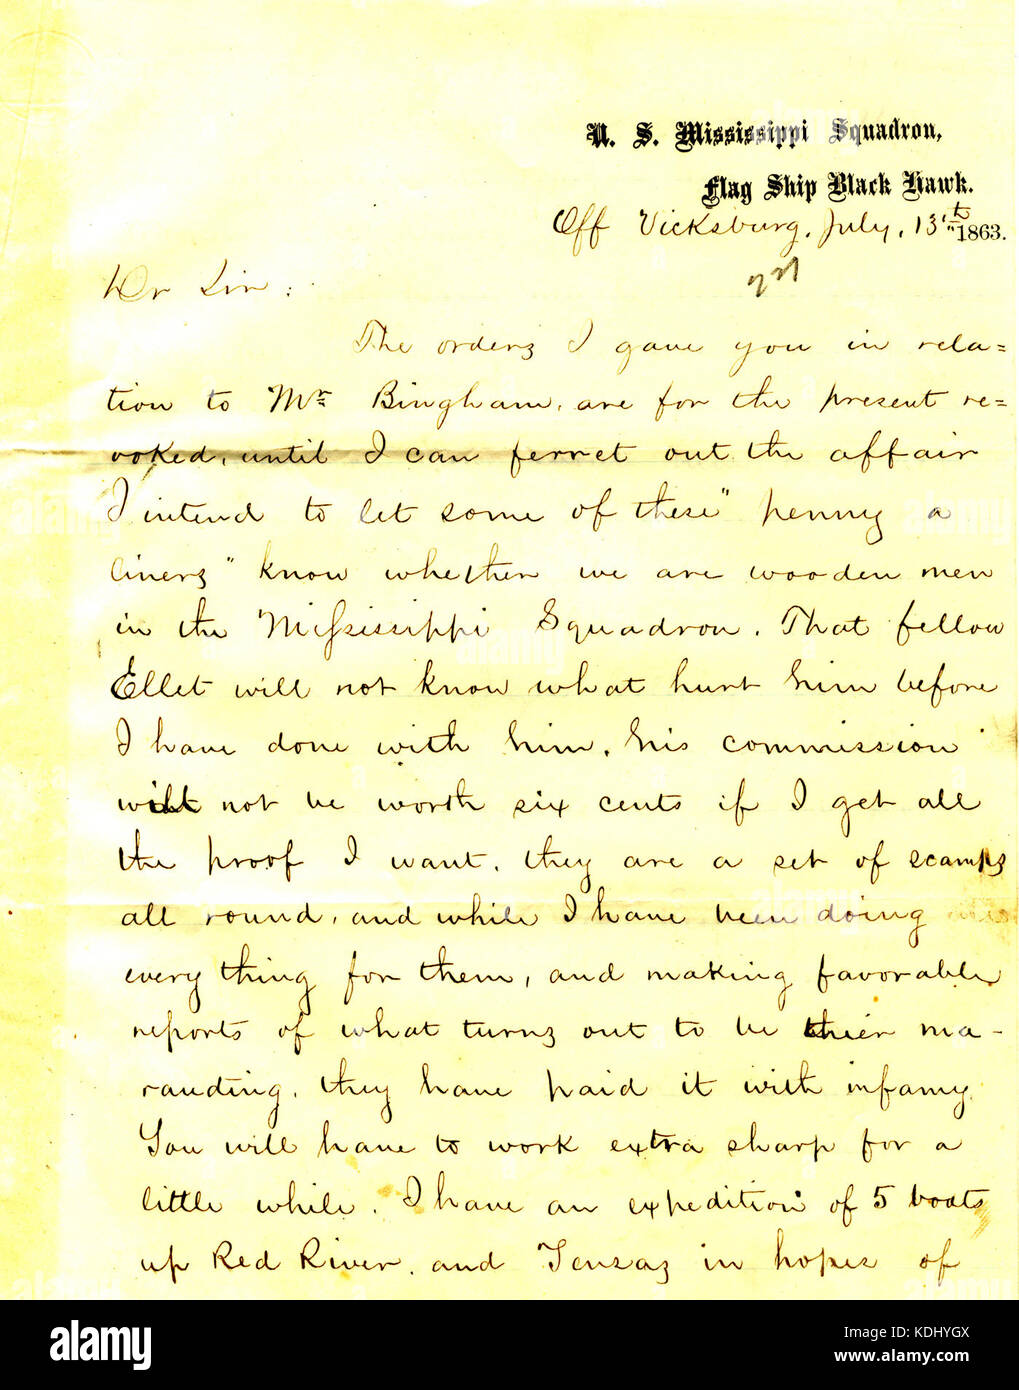 U. S. Mississippi Squadron,
Flag Ship Black Hawk.
Off Vicksburg, July, 13th 1863.
Dr Sir:
The orders I gave you in rela=
tion to Mr Bingham, are for the present re=
voked, until I can ferret out the affair
I intend to let some of these "penny a
liners" know whether we are wooden men
in the Mississippi Squadron. That fellow
Ellet will not know what hurt him before
I have done with him, his commission
will not be worth six cents if I get all
the proof I want. they are a set of scamps
all round, and while I have been doing
every thing for them, and making favorable
reports of what turns out to be their ma-
rauding, they have paid it with infamy
You will have to work extra sharp for a
little while. I have an expedition of 5 boats
up Red River, and Tensas in hopes of
alamy
Image ID: KDHYGX
www.alamy.com